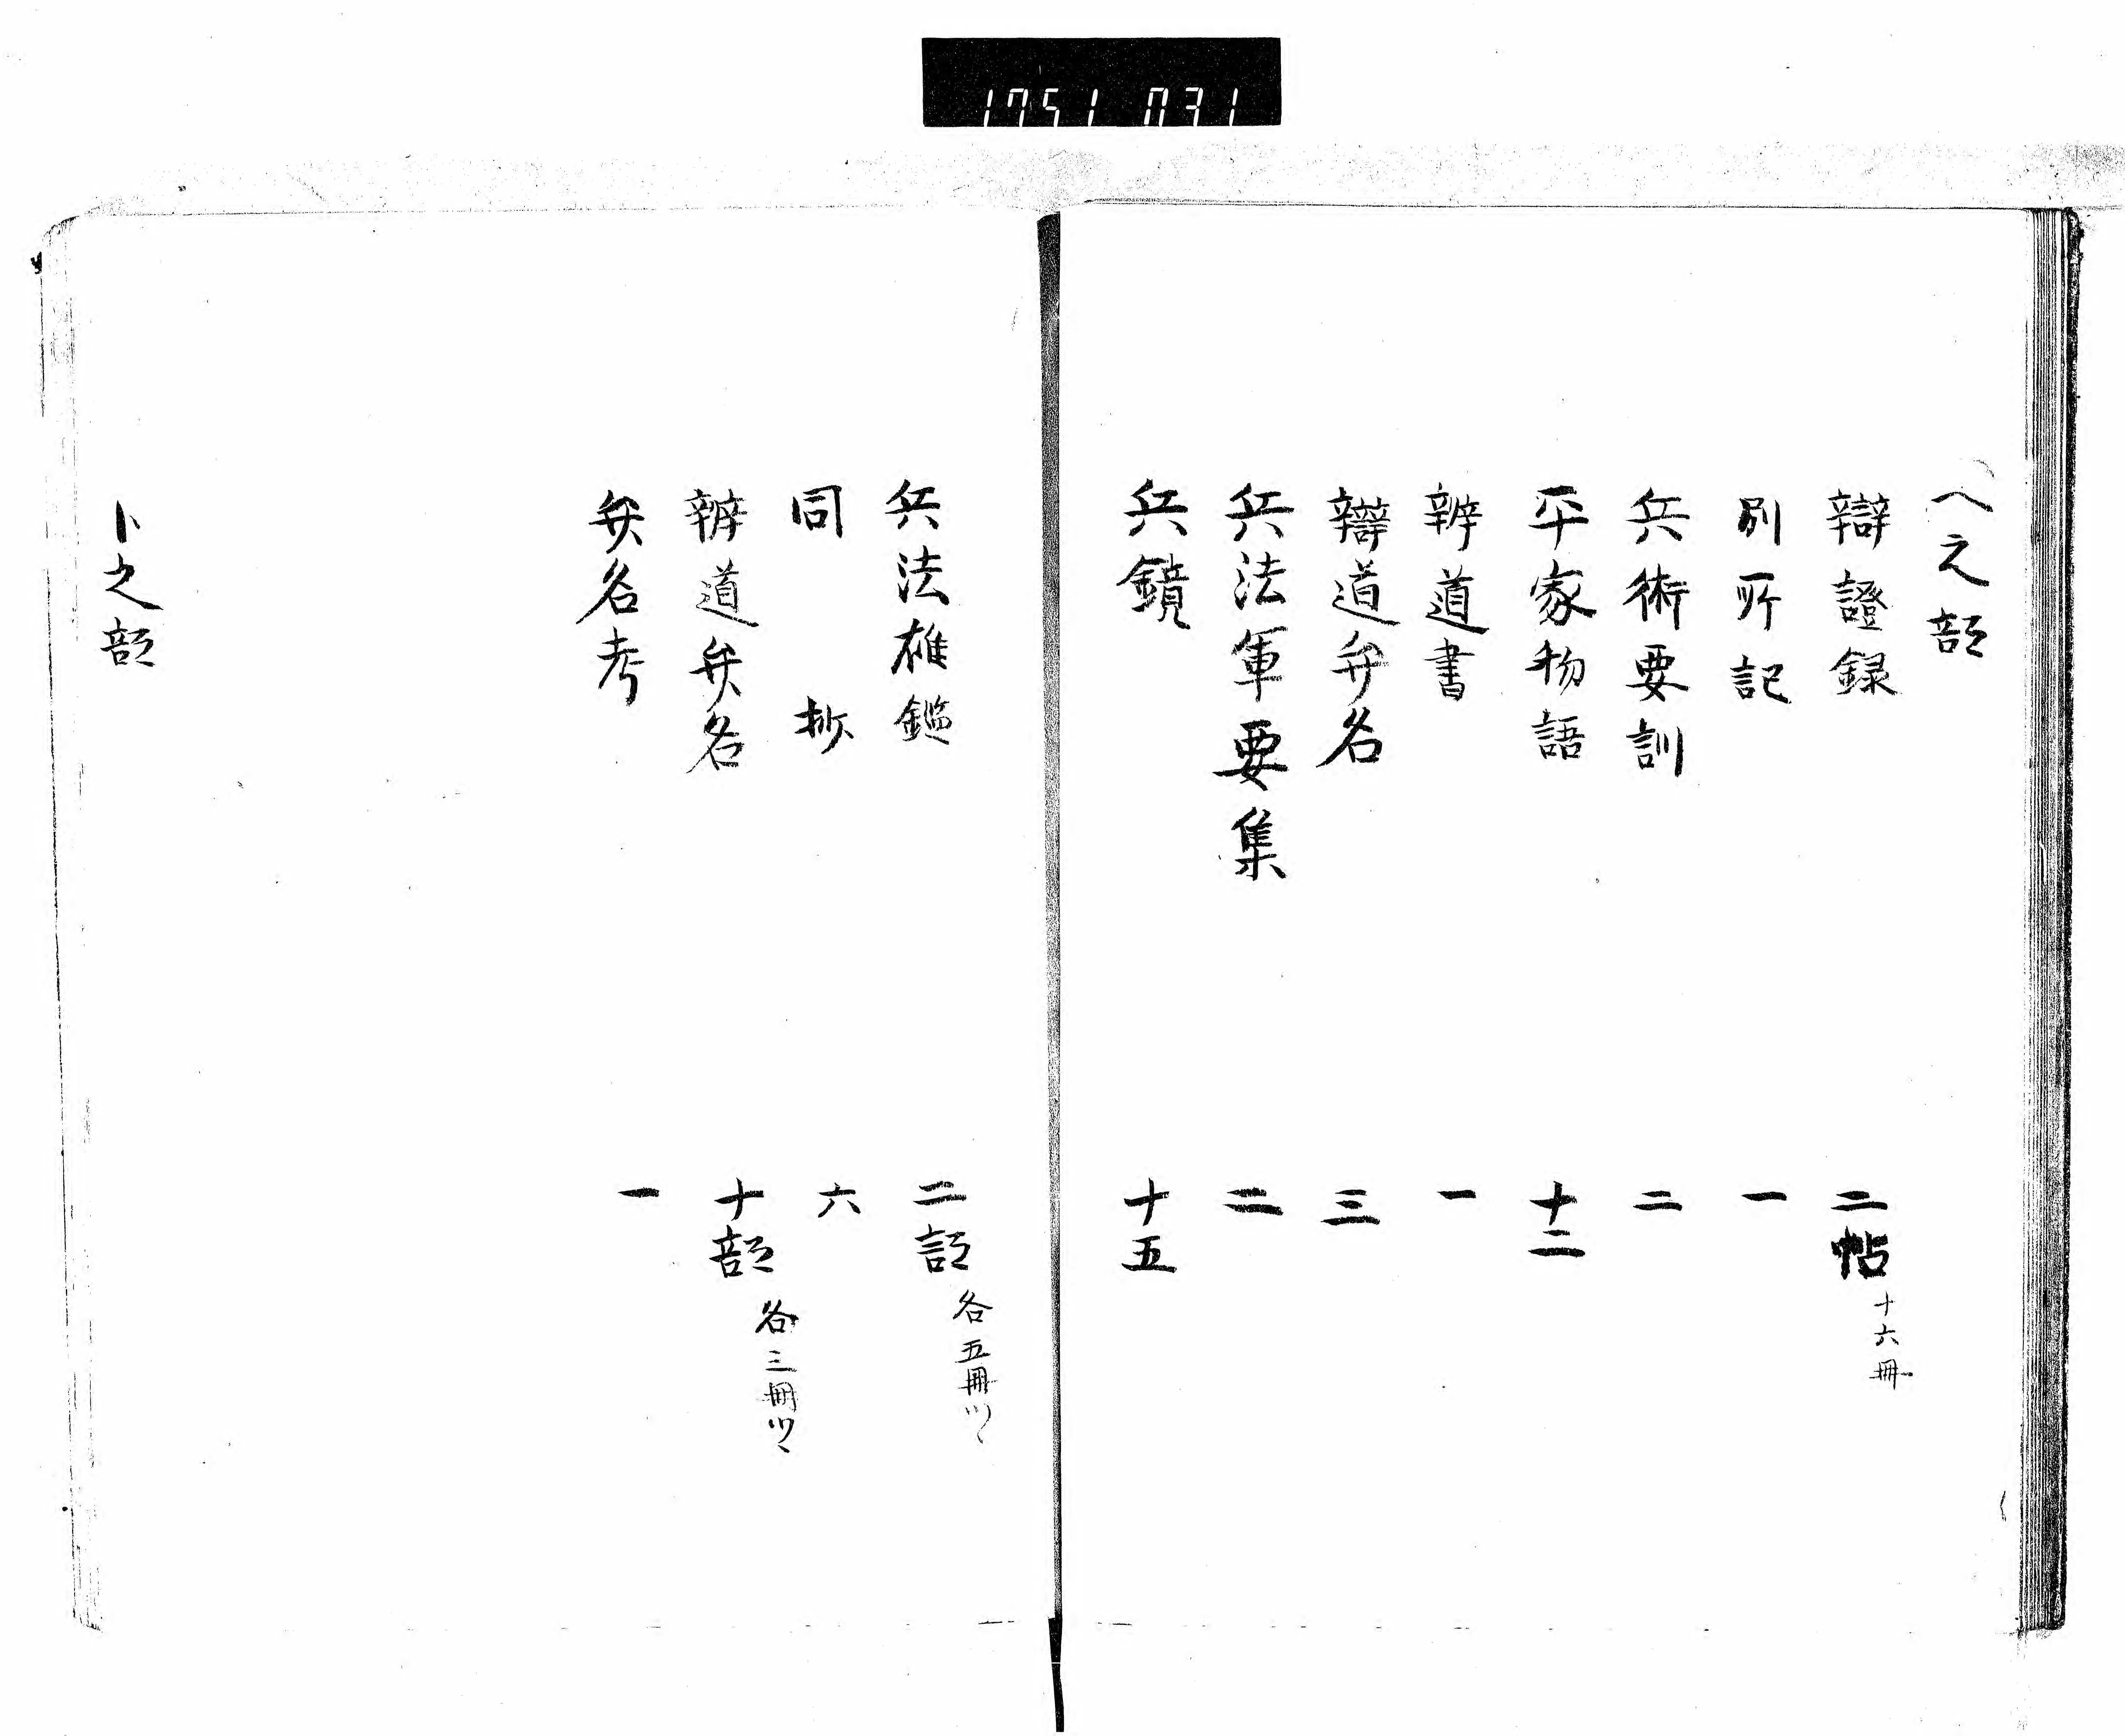 1751 031
ヘ之部
辯證録 二帖 十六冊
別所記 一
兵術要訓 二
平家物語 十二
辨道書 一
辯道弁名 三
兵法軍要集 二
兵鏡 十五
兵法雄鑑 二部 各五冊ツヽ
同抄 六
辨道弁名 十部 各三冊ツヽ
弁名考 一
ト之部